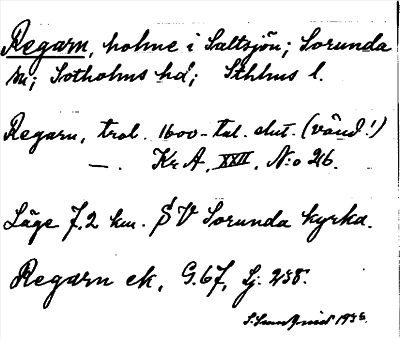 Regarn, holme i Saltsjön; Sorunda
sn; Sotholms hd; Sthlms l.
Regarn, trol. 1600-tal. slut. (vänd!)
—. Kr A. XXII. N:o 26.
Läge 7,2 km. SV Sorunda kyrka.
Regarn ek, G. 67, Sj. 258.
1938.